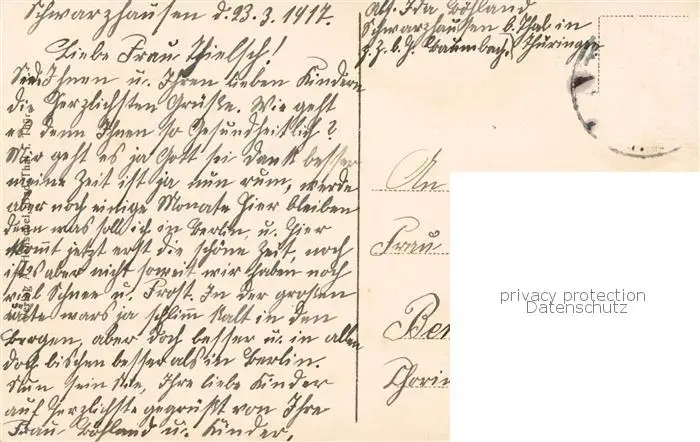 Schwarzhausen d. 23.3.1917.
Liebe Frau Thielsch!
Sende Ihnen u. Ihren lieben Kindern
die herzlichsten Grüße. Wie geht
es denn Ihnen so Gesundheitlich?
Mir geht es ja Gott sei Dank besser
meine Zeit ist ja nun rum, werde
aber noch einige Monate hier bleiben
denn was soll ich in Berlin, u. hier
kommt jetzt erst die schöne Zeit, noch
ist's aber nicht soweit wir haben noch
viel Schnee u. Frost. In der großen
Kälte wars ja schlimm kalt in den
Bergen, aber doch besser u. in allen
doch bischen besser als in Berlin.
Nun sein Sie, Ihre liebe Kinder
auf herzlichste gegrüßt von Ihre
Frau Böhland u. Kinder.
Abs. Ida Böhland
Schwarzhausen b. Thal in
z.z. b. H. Baumbach. Thüringen
An
Frau
Ber
Chorin
privacy protection
Datenschutz